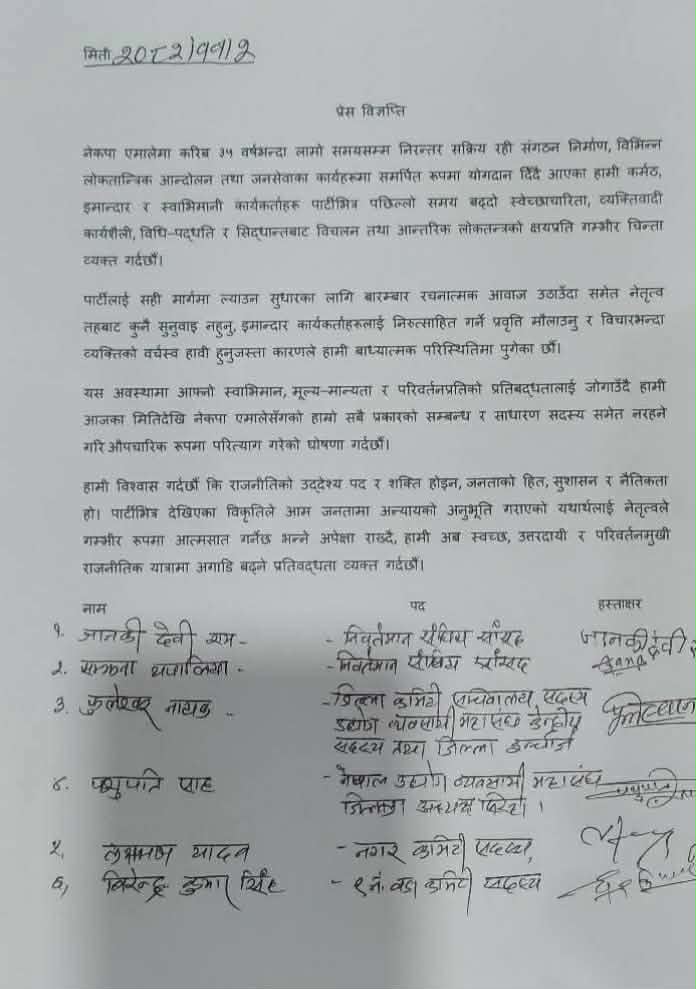 मिती २०८२।११।२
प्रेस विज्ञप्ति
नेकपा एमालेमा करिब ३५ वर्षभन्दा लामो समयसम्म निरन्तर सक्रिय रही संगठन निर्माण, विभिन्न
लोकतान्त्रिक आन्दोलन तथा जनसेवाका कार्यहरूमा समर्पित रूपमा योगदान दिँदै आएका हामी कर्मठ,
इमान्दार र स्वाभिमानी कार्यकर्ताहरू पार्टीभित्र पछिल्लो समय बढ्दो स्वेच्छाचारिता, व्यक्तिवादी
कार्यशैली, विधि-पद्धति र सिद्धान्तबाट विचलन तथा आन्तरिक लोकतन्त्रको क्षयप्रति गम्भीर चिन्ता
व्यक्त गर्दछौं।
पार्टीलाई सही मार्गमा ल्याउन सुधारका लागि बारम्बार रचनात्मक आवाज उठाउँदा समेत नेतृत्व
तहबाट कुनै सुनुवाइ नहुनु, इमान्दार कार्यकर्ताहरूलाई निरुत्साहित गर्ने प्रवृत्ति मौलाउनु र विचारभन्दा
व्यक्तिको वर्चस्व हावी हुनुजस्ता कारणले हामी बाध्यात्मक परिस्थितिमा पुगेका छौं।
यस अवस्थामा आफ्नो स्वाभिमान, मूल्य-मान्यता र परिवर्तनप्रतिको प्रतिबद्धतालाई जोगाउँदै हामी
आजका मितिदेखि नेकपा एमालेसँगको हाम्रो सबै प्रकारको सम्बन्ध र साधारण सदस्य समेत नरहने
गरि औपचारिक रूपमा परित्याग गरेको घोषणा गर्दछौं।
हामी विश्वास गर्दछौं कि राजनीतिको उद्देश्य पद र शक्ति होइन, जनताको हित, सुशासन र नैतिकता
हो। पार्टीभित्र देखिएका विकृतिले आम जनतामा अन्यायको अनुभूति गराएको यथार्थलाई नेतृत्वले
गम्भीर रूपमा आत्मसात गर्नेछ भन्ने अपेक्षा राख्दै, हामी अब स्वच्छ, उत्तरदायी र परिवर्तनमुखी
राजनीतिक यात्रामा अगाडि बढ्ने प्रतिवद्धता व्यक्त गर्दछौं।
नाम पद हस्ताक्षर
१. जानकी देवी राम - - निवर्तमान संघिय सांसद जानकी देवी
२. थपालिया - - निवर्तमान संघिय सांसद
३. फुलेश्वर नायक - - जिल्ला कमिटी सचिवालय सदस्य
उद्योग व्यवसायी महासंघ केन्द्रीय
सदस्य तथा जिल्ला इन्चार्ज
४. पशुपति साह - नेपाल उद्योग व्यवसायी महासंघ
जिल्ला अध्यक्ष ।
५. लक्ष्मण यादव - नगर कमिटी सदस्य,
६, बिरेन्द्र कुमार सिंह - १ नं. वडा कमिटी सदस्य